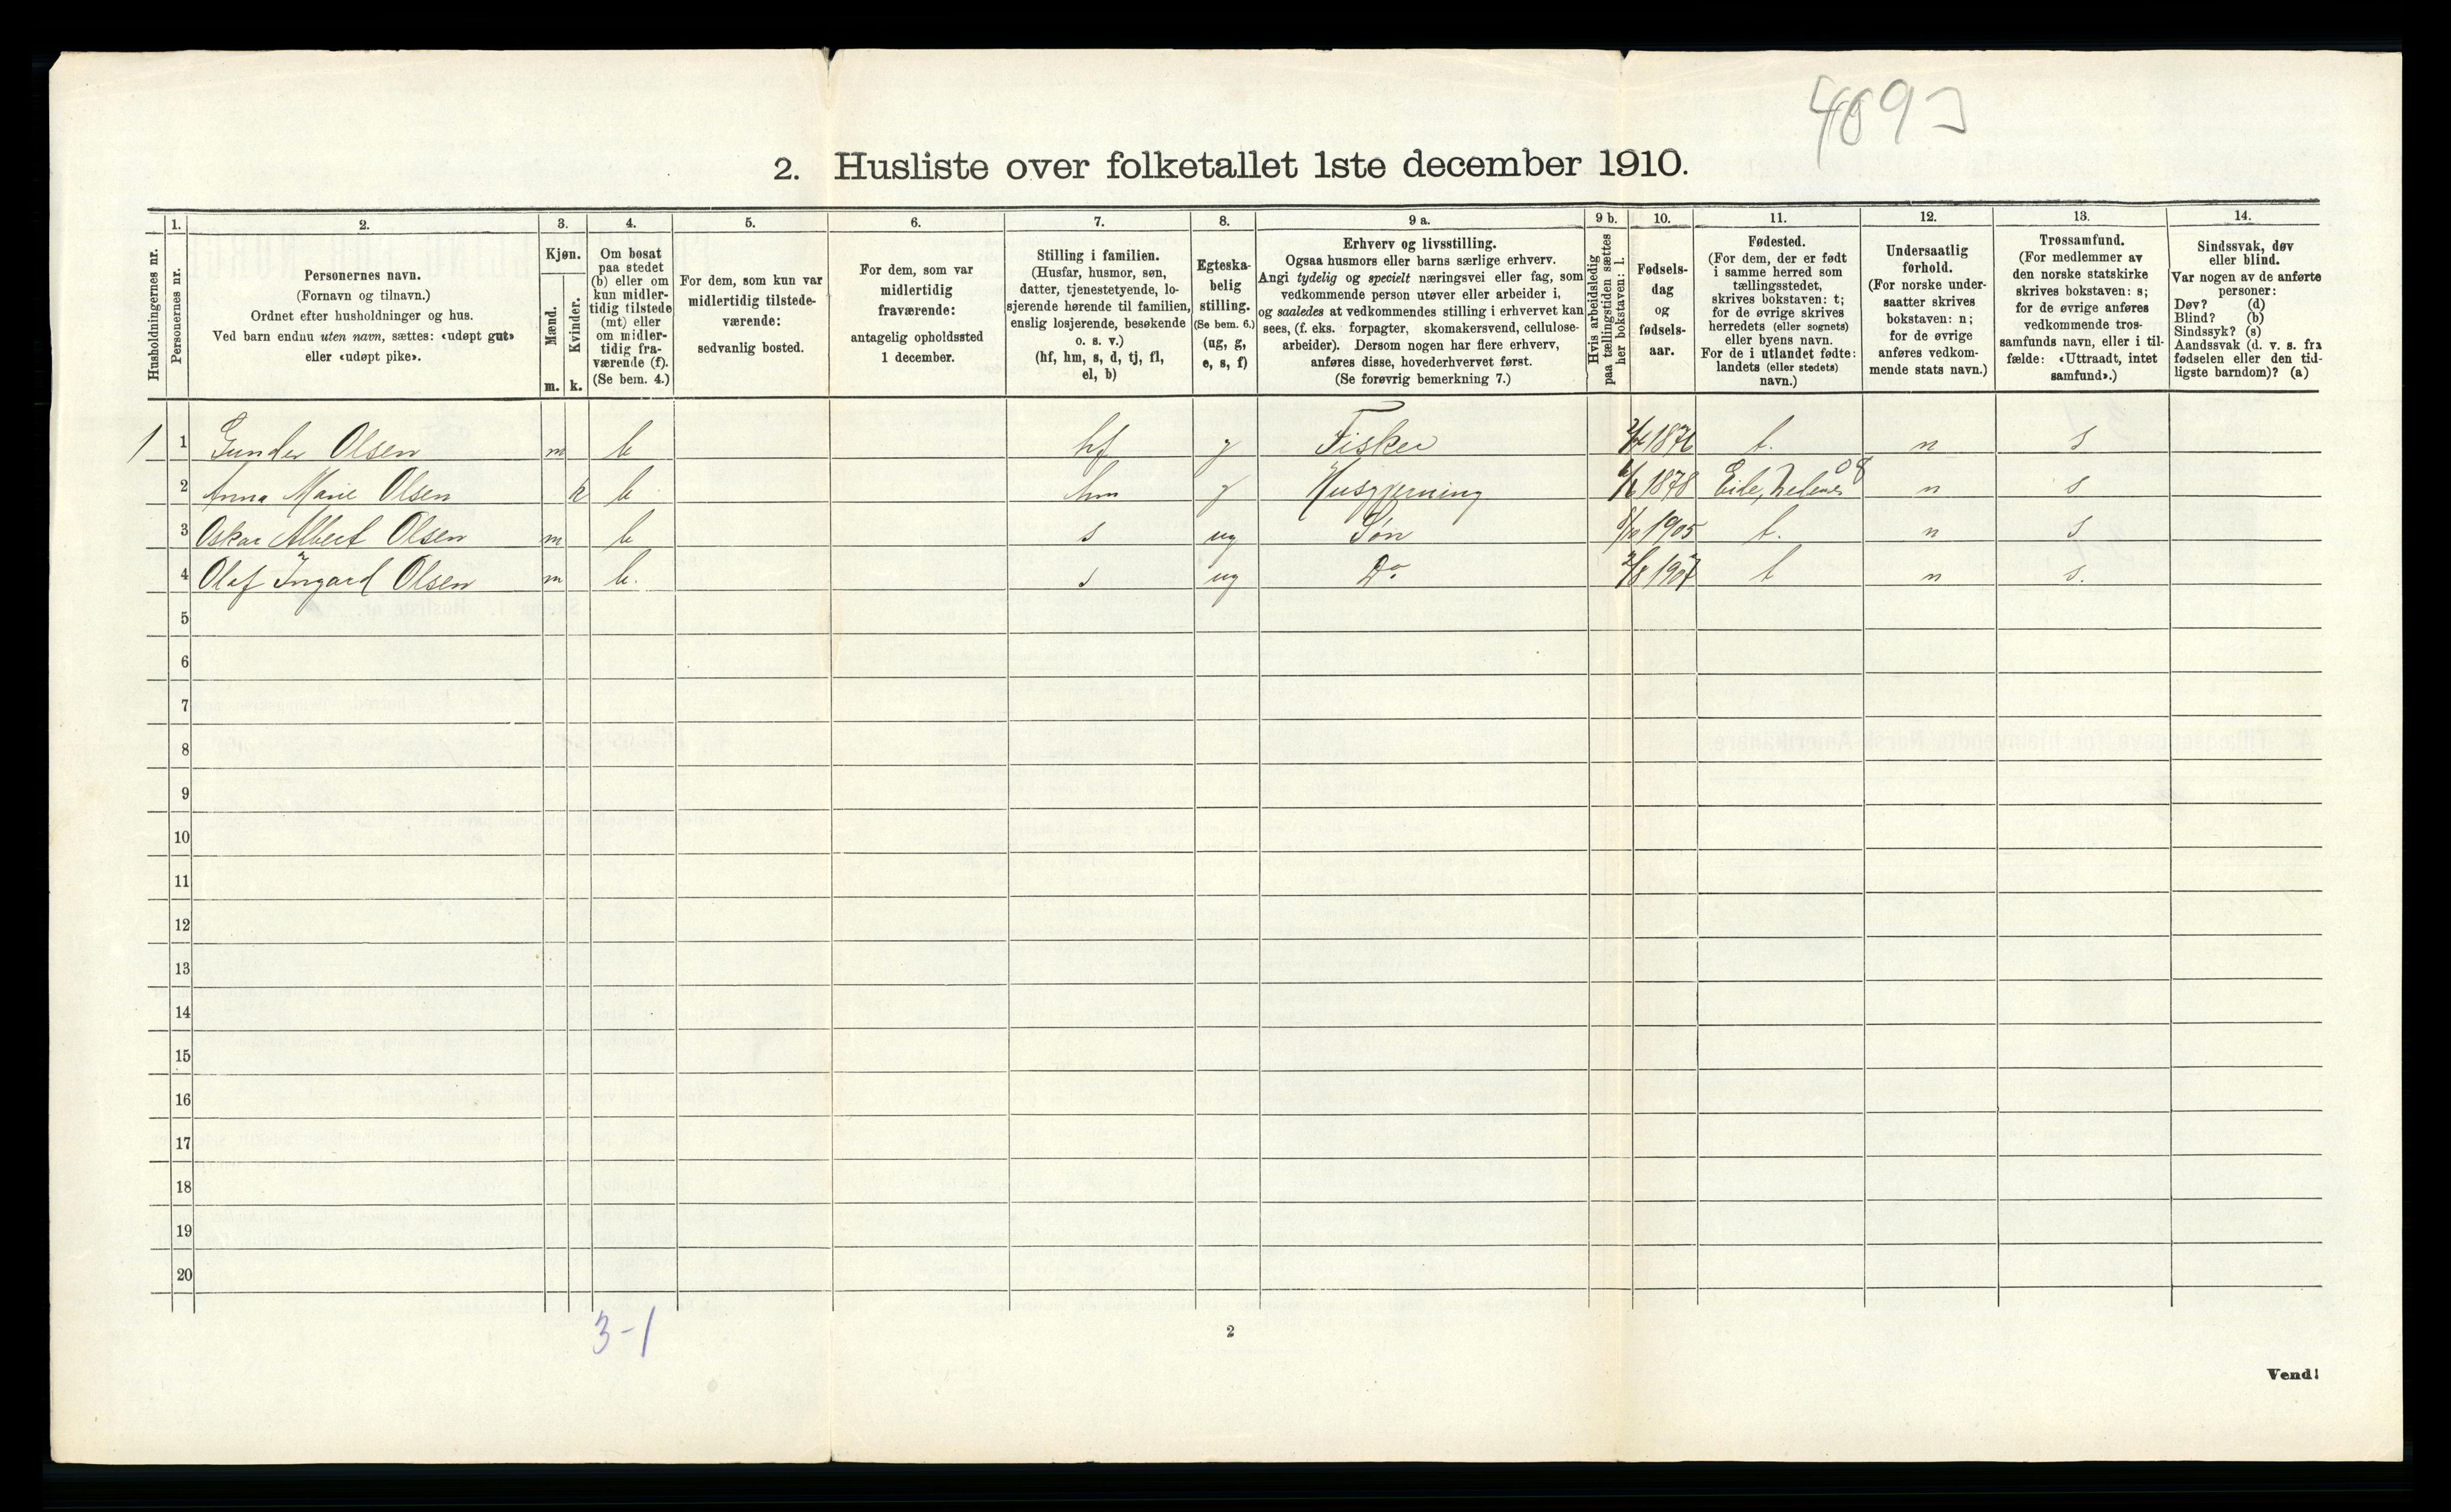 409
2. Husliste over folketallet 1ste december 1910.
1. 2. 3. 4. 5. 6. 7. 8. 9 a. 9 b. 10. 11. 12. 13. 14.
Husholdningernes nr.
Personernes nr.
Personernes navn.
(Fornavn og tilnavn.)
Ordnet efter husholdninger og hus.
Ved barn endnu uten navn, sættes: «udøpt gut»
eller «udøpt pike».
Kjøn.
Mænd.
Kvinder.
m. k.
Om bosat
paa stedet
(b) eller om
kun midler-
tidig tilstede
(mt) eller
om midler-
tidig fra-
værende (f).
(Se bem. 4.)
For dem, som kun var
midlertidig tilstede-
værende:
sedvanlig bosted.
For dem, som var
midlertidig
fraværende:
antagelig opholdssted
1 december.
Stilling i familien.
(Husfar, husmor, søn,
datter, tjenestetyende, lo-
sjerende hørende til familien,
enslig losjerende, besøkende
o. s. v.)
(hf, hm, s, d, tj, fl,
el, b)
Egteska-
belig
stilling.
(Se bem. 6.)
(ug, g,
e, s, f)
Erhverv og livsstilling.
Ogsaa husmors eller barns særlige erhverv.
Angi tydelig og specielt næringsvei eller fag, som
vedkommende person utøver eller arbeider i,
og saaledes at vedkommendes stilling i erhvervet kan
sees, (f. eks. forpagter, skomakersvend, cellulose-
arbeider). Dersom nogen har flere erhverv,
anføres disse, hovederhvervet først.
(Se forøvrig bemerkning 7.)
Hvis arbeidsledig
paa tællingstiden sættes
her bokstaven: l.
Fødsels-
dag
og
fødsels-
aar.
Fødested.
(For dem, der er født
i samme herred som
tællingsstedet,
skrives bokstaven: t;
for de øvrige skrives
herredets (eller sognets)
eller byens navn.
For de i utlandet fødte:
landets (eller stedets)
navn.)
Undersaatlig
forhold.
(For norske under-
saatter skrives
bokstaven: n;
for de øvrige
anføres vedkom-
mende stats navn.)
Trossamfund.
(For medlemmer av
den norske statskirke
skrives bokstaven: s;
for de øvrige anføres
vedkommende tros-
samfunds navn, eller i til-
fælde: «Uttraadt, intet
samfund».)
Sindssvak, døv
eller blind.
Var nogen av de anførte
personer:
Døv? (d)
Blind? (b)
Sindssyk? (s)
Aandssvak (d. v. s. fra
fødselen eller den tid-
ligste barndom)? (a)
1 1 Gunder Olsen m b hf g Fisker 1876 t. n s
2 Anna Marie Olsen k b hm g Husgjerning 1878 Eide, n s
3 Oskar Albert Olsen m b s ug Søn 1905 t. n s
4 Olaf Ingard Olsen m b. s ug Do 1907 t n s.
5
6
7
8
9
10
11
12
13
14
15
16
17
18
19
20
3-1
2
Vend!